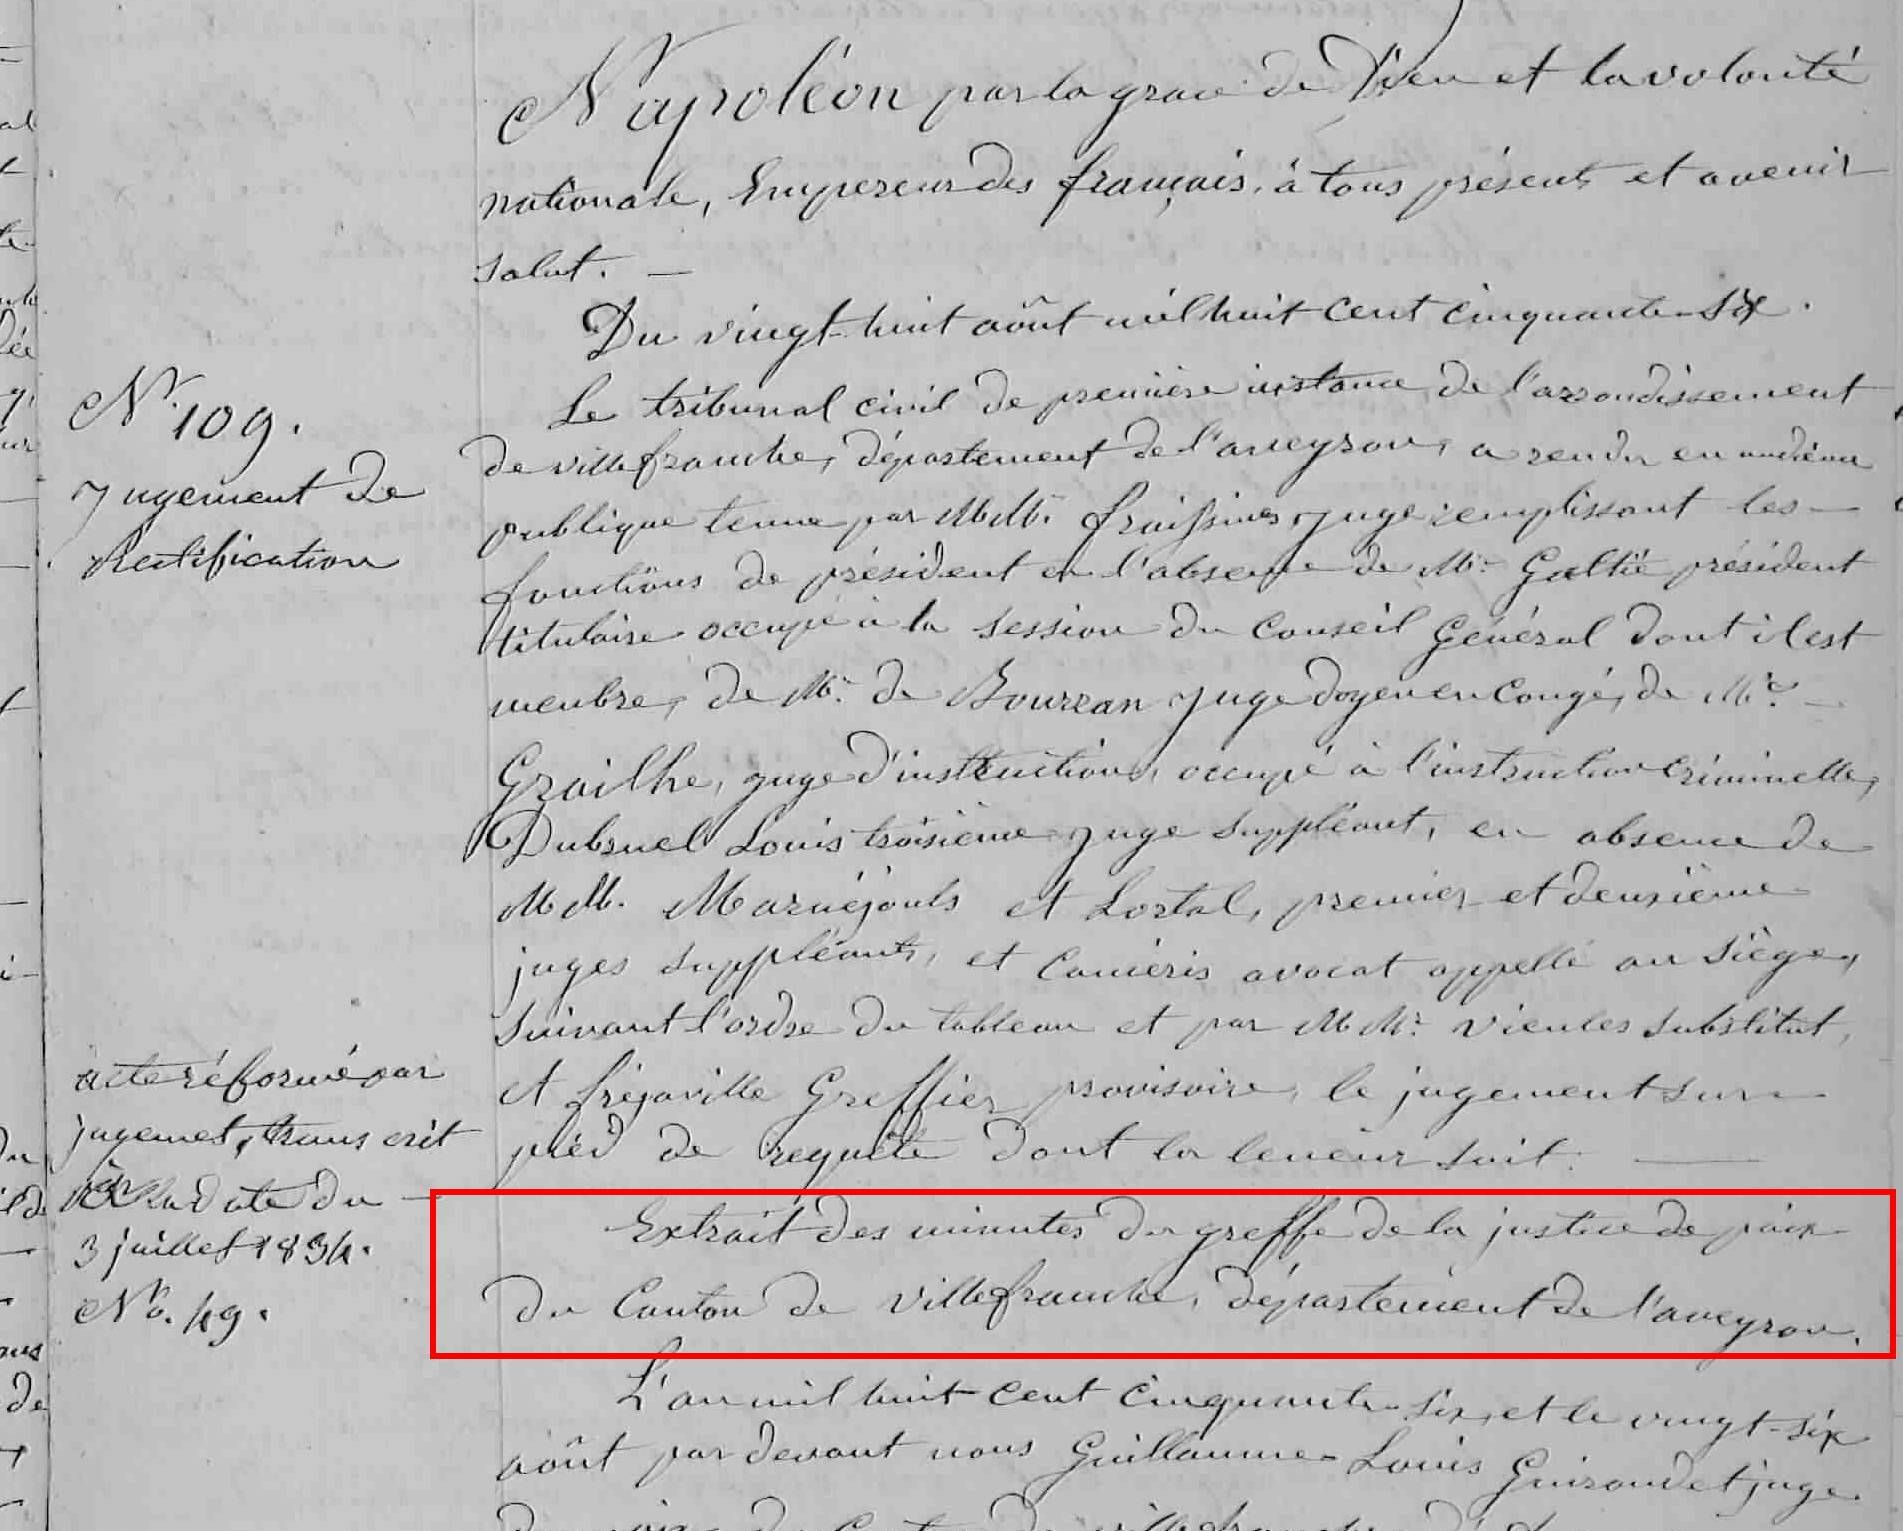 Napoléon par la grace de Dieu et la volonté
nationale, Empereur des français, à tous présents et avenir
salut. —
Du vingt-huit août mil huit cent cinquante-six.
Le tribunal civil de première instance de l'arrondissement
de villefranche, département de l'aveyron, a rendu en audience
publique tenue par MM. fraissines juge remplissant les —
fonctions de président en l'absence de Mr. Galtié président
titulaire occupé à la session du Conseil Général dont il est
membre, de Mr. de Bourran juge doyen en Congé, de Mr. —
Grailhe, juge d'instruction, occupé à l'instruction Criminelle,
Dubruel Louis troisième juge suppléant, en absence de
MM. Maruéjouls et Lortal, premier et deuxième
juges suppléants, et Caniéris avocat appellé au siège,
suivant l'ordre du tableau et par MM. Vieules substitut,
et fréjaville Greffier provisoire, le jugement sur
pied de requête dont la teneur suit : —
Extrait des minutes du greffe de la justice de paix
du Canton de villefranche, département de l'aveyron.
L'an mil huit cent cinquante-six, et le vingt-six
août par devant nous Guillaume-Louis Guiraudet juge
N. 109.
Jugement de
Rectification
acte réformé par
jugement, transcrit
à la date du —
3 juillet 1834.
No. 49.